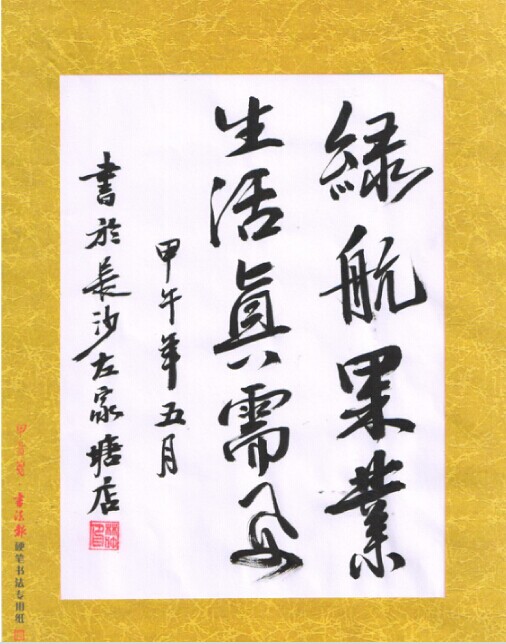 緑航果業
生活真需要
甲午年五月
書於長沙左家塘店
書法報 硬笔书法专用纸